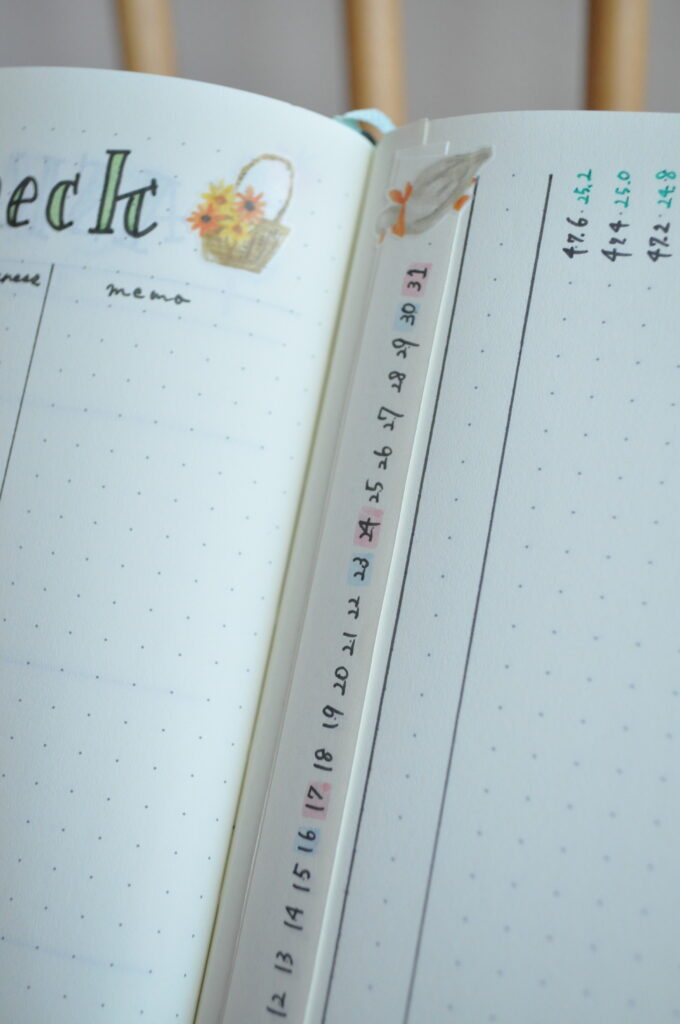 eck
memo
12 13 14 15 16 17 18 19 20 21 22 23 24 25 26 27 28 29 30 31
47.6 · 25.2
47.4 · 25.0
47.2 · 24.8